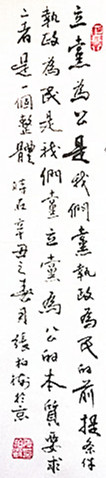 立黨為公是我們黨執政為民的前提條件
執政為民是我們黨立黨為公的本質要求
二者是一個整體 時在辛丑之春月張柏於京